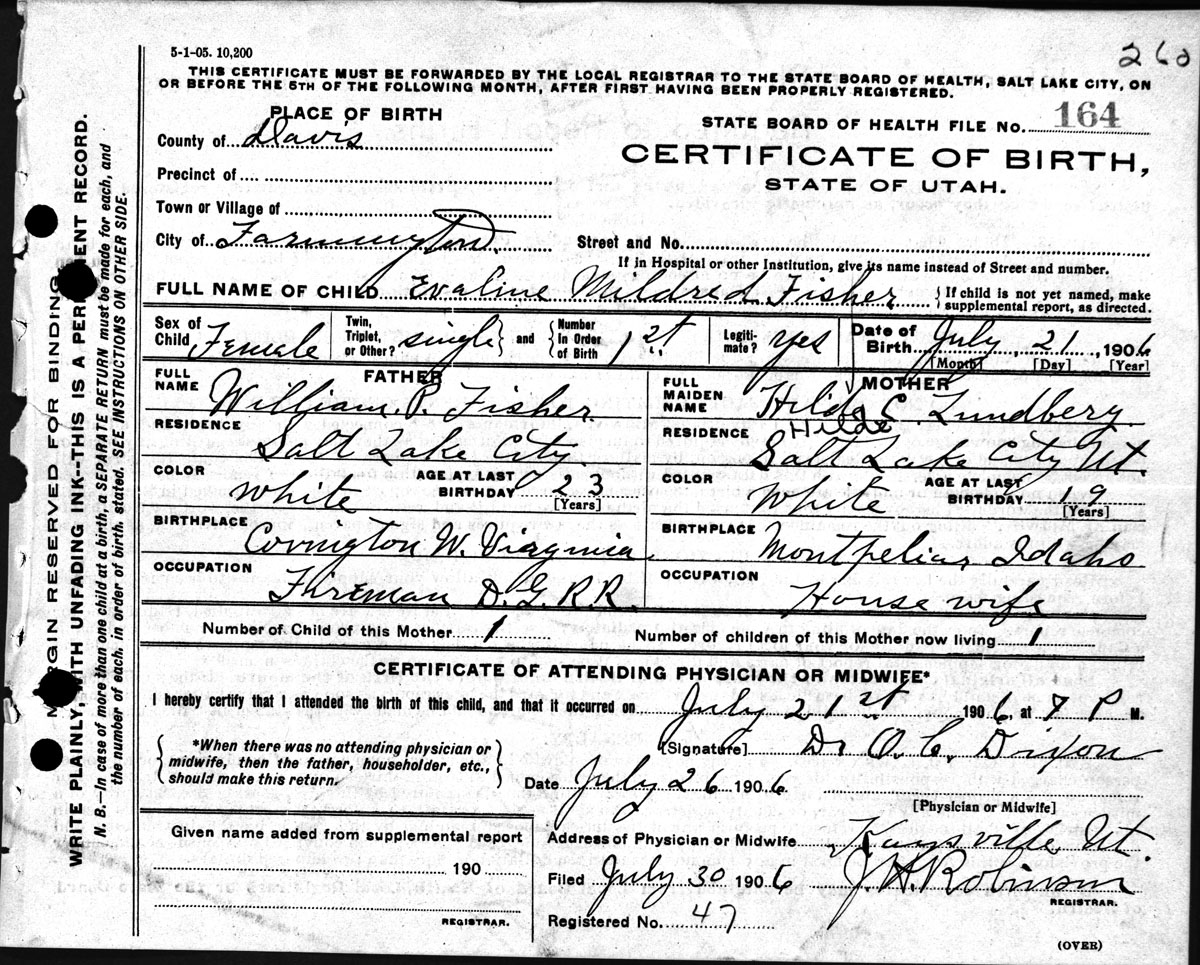 260
5-1-05. 10,200
THIS CERTIFICATE MUST BE FORWARDED BY THE LOCAL REGISTRAR TO THE STATE BOARD OF HEALTH, SALT LAKE CITY, ON
OR BEFORE THE 5TH OF THE FOLLOWING MONTH, AFTER FIRST HAVING BEEN PROPERLY REGISTERED.
PLACE OF BIRTH
STATE BOARD OF HEALTH FILE No. 164
County of Davis
CERTIFICATE OF BIRTH,
Precinct of
STATE OF UTAH.
Town or Village of
City of Farmington. Street and No.
If in Hospital or other Institution, give its name instead of Street and number.
FULL NAME OF CHILD Evaline Mildred Fisher { If child is not yet named, make
supplemental report, as directed.
Sex of Child Female Twin, Triplet, or Other? single } and { Number in Order of Birth 1st Legiti-mate? yes Date of Birth July 21, 1906
[Month] [Day] [Year]
FATHER MOTHER
FULL NAME William P. Fisher FULL MAIDEN NAME Hilda C. Lundberg
Hilda
RESIDENCE Salt Lake City RESIDENCE Salt Lake City Ut.
COLOR White AGE AT LAST BIRTHDAY 23 COLOR White AGE AT LAST BIRTHDAY 19
[Years] [Years]
BIRTHPLACE Covington W. Virginia BIRTHPLACE Montpeliar Idaho
OCCUPATION Fireman D.G.R.R. OCCUPATION House wife
Number of Child of this Mother 1 Number of children of this Mother now living 1
CERTIFICATE OF ATTENDING PHYSICIAN OR MIDWIFE*
I hereby certify that I attended the birth of this child, and that it occurred on July 21st 1906, at 7 P M.
{ *When there was no attending physician or
midwife, then the father, householder, etc.,
should make this return. }
[Signature] Dr O. C. Dixon
Date July 26 1906
[Physician or Midwife]
Given name added from supplemental report
190
REGISTRAR.
Address of Physician or Midwife Kaysville, Ut.
Filed July 30 1906 J H Robinson
REGISTRAR.
Registered No. 47
(OVER)
MARGIN RESERVED FOR BINDING
WRITE PLAINLY, WITH UNFADING INK--THIS IS A PERMANENT RECORD.
N. B.—In case of more than one child at a birth, a SEPARATE RETURN must be made for each, and
the number of each, in order of birth, stated. SEE INSTRUCTIONS ON OTHER SIDE.